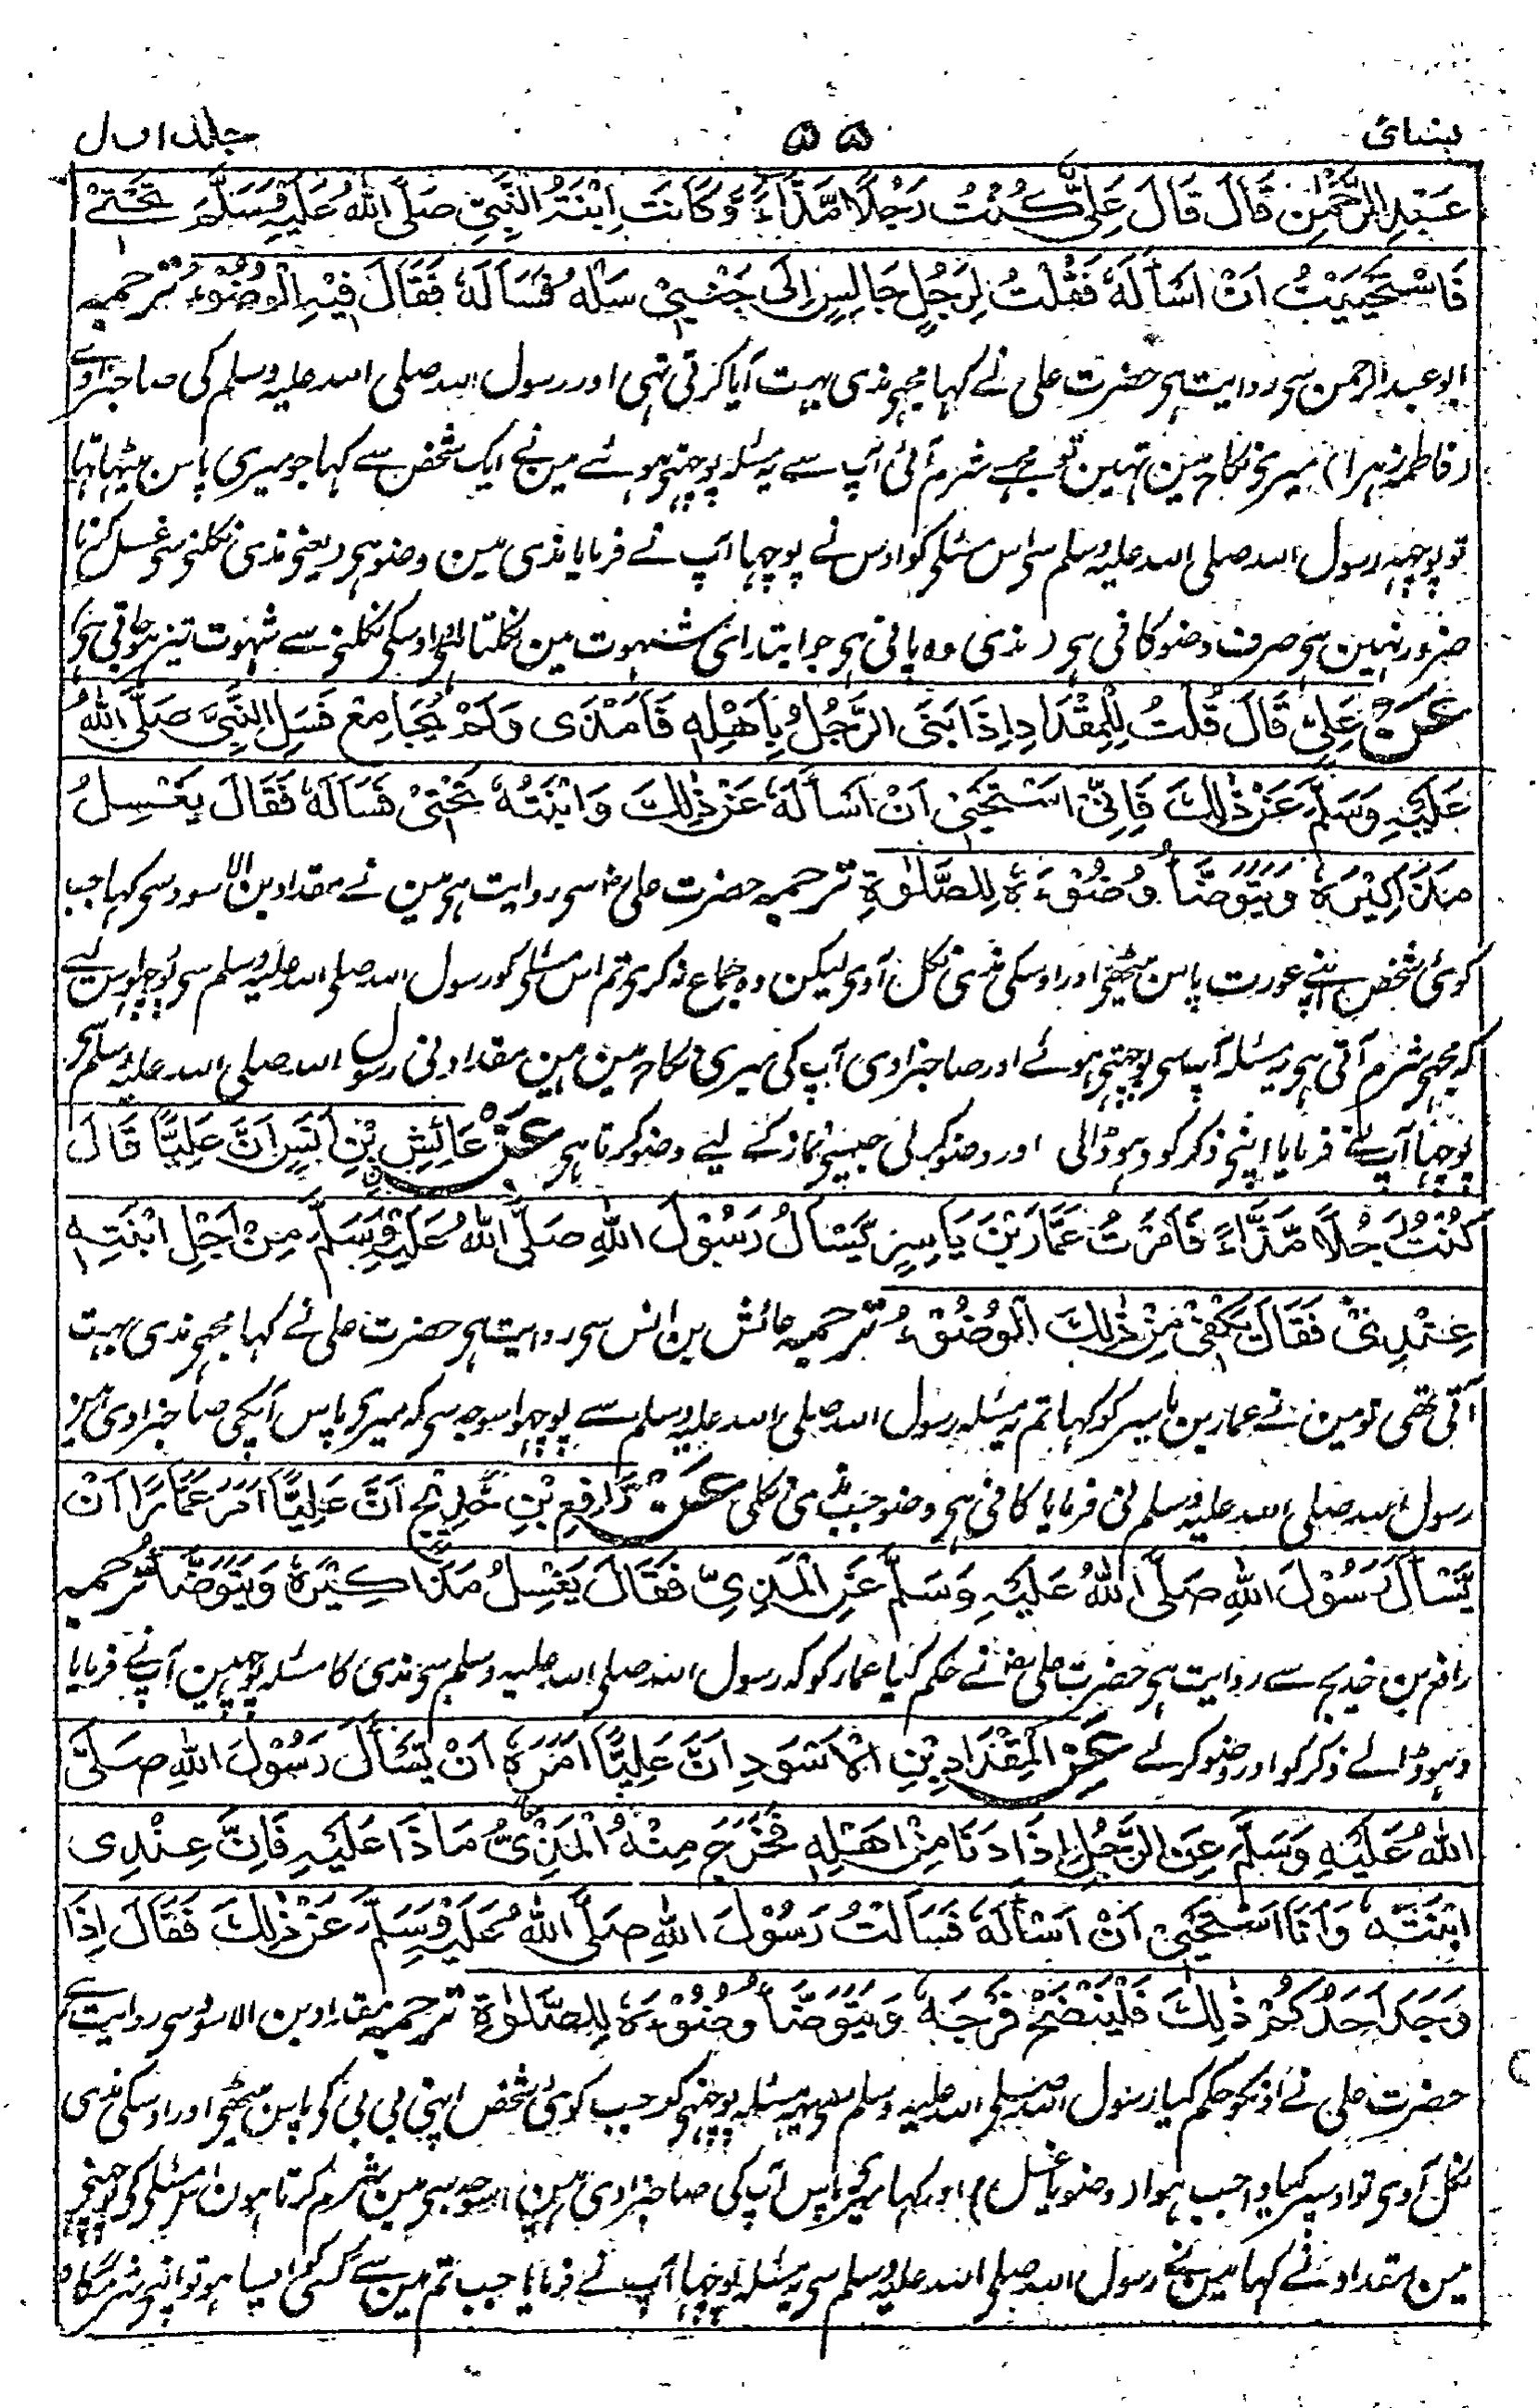 نسائی ۵۵ جلد اول
عَبْدِ الرَّحْمٰنِ قَالَ قَالَ عَلِيٌّ كُنْتُ رَجُلًا مَّذَّاءً وَّكَانَتِ ابْنَةُ النَّبِيِّ صَلَّى اللهُ عَلَيْهِ وَسَلَّمَ تَحْتِيْ
فَاسْتَحْيَيْتُ اَنْ اَسْاَلَهٗ فَقُلْتُ لِرَجُلٍ جَالِسٍ اِلٰى جَنْبِيْ سَلْهُ فَسَاَلَهٗ فَقَالَ فِيْهِ الْوُضُوْءُ ترجمہ
ابو عبدالرحمن سی روایت ہی حضرت علی نے کہا مجہی مذی بہت آیا کرتی تہی اور رسول اللہ صلی اللہ علیہ وسلم کی صاحبزادی
(فاطمہ زہرا) میری نکاح مین تہین تو مجہے شرم آئی آپ سے یہ مسئلہ پوچہتی ہوئے مین نے ایک شخص سے کہا جو میری پاس بیٹہا تہا
تو پوچہہ رسول اللہ صلی اللہ علیہ وسلم سی اس مسئلی کو اوس نے پوچہا آپ نے فرمایا مذی مین وضو ہی (یعنی مذی نکلنی سی غسل کرنا
ضرور نہین ہی صرف وضو کافی ہی (مذی وہ پانی ہی جو ابتدای شہوت مین نکلتا ہی اوسکی نکلنی سے شہوت تیز ہوجاتی ہی)
عَنْ عَلِيٍّ قَالَ قُلْتُ لِلْمِقْدَادِ اِذَا بَنَى الرَّجُلُ بِاَهْلِهٖ فَاَمْذٰى وَلَمْ يُجَامِعْ فَسَلِ النَّبِيَّ صَلَّى اللهُ
عَلَيْهِ وَسَلَّمَ عَنْ ذٰلِكَ فَاِنِّيْ اَسْتَحْيِيْ اَنْ اَسْاَلَهٗ عَنْ ذٰلِكَ وَابْنَتُهٗ تَحْتِيْ فَسَاَلَهٗ فَقَالَ يَغْسِلُ
مَذَاكِيْرَهٗ وَيَتَوَضَّأُ وُضُوْءَهٗ لِلصَّلٰوةِ ترجمہ حضرت علی رض سی روایت ہی مین نے مقداد بن الاسود سی کہا جب
کوئی شخص اپنے عورت پاس بیٹہی اور اوسکی مذی نکل آوی لیکن وہ جماع نہ کری تم اس مسئلی کو رسول اللہ صلی اللہ علیہ وسلم سی پوچہو اس لیے
کہ مجہی شرم آتی ہی یہ مسئلہ آپسی پوچہتی ہوئے اور صاحبزادی آپ کی میری نکاح مین ہین مقداد نی رسول اللہ صلی اللہ علیہ وسلم سی
پوچہا آپ نے فرمایا اپنی ذکر کو دہو ڈالی اور وضو کرلی جیسی نماز کے لیے وضو کرتا ہی عَنْ عَائِشِ بْنِ اَنَسٍ اَنَّ عَلِيًّا قَالَ
كُنْتُ رَجُلًا مَّذَّاءً فَاَمَرْتُ عَمَّارَ بْنَ يَاسِرٍ يَسْاَلُ رَسُوْلَ اللهِ صَلَّى اللهُ عَلَيْهِ وَسَلَّمَ مِنْ اَجْلِ ابْنَتِهٖ
عِنْدِيْ فَقَالَ يَكْفِيْ مِنْ ذٰلِكَ الْوُضُوْءُ ترجمہ عائش بن انس سی روایت ہی حضرت علی نے کہا مجہی مذی بہت
آتی تھی تو مین نے عمار بن یاسر کو کہا تم یہ مسئلہ رسول اللہ صلی اللہ علیہ وسلم سے پوچہو اسوجہ سی کہ میری پاس آپکی صاحبزادی ہین
رسول اللہ صلی اللہ علیہ وسلم نی فرمایا کافی ہی وضو جب مذی نکلی عَنْ رَّافِعِ بْنِ خَدِيْجٍ اَنَّ عَلِيًّا اَمَرَ عَمَّارًا اَنْ
يَّسْاَلَ رَسُوْلَ اللهِ صَلَّى اللهُ عَلَيْهِ وَسَلَّمَ عَنِ الْمَذِيِّ فَقَالَ يَغْسِلُ مَذَاكِيْرَهٗ وَيَتَوَضَّأُ ترجمہ
رافع بن خدیج سے روایت ہی حضرت علی رض نے حکم کیا عمار کو کہ رسول اللہ صلی اللہ علیہ وسلم سی مذی کا مسئلہ پوچہین آپ نے فرمایا
دہو ڈالے ذکر کو اور وضو کرلے عَنِ الْمِقْدَادِ بْنِ الْاَسْوَدِ اَنَّ عَلِيًّا اَمَرَهٗ اَنْ يَّسْاَلَ رَسُوْلَ اللهِ صَلَّى
اللهُ عَلَيْهِ وَسَلَّمَ عَنِ الرَّجُلِ اِذَا دَنَا مِنْ اَهْلِهٖ فَخَرَجَ مِنْهُ الْمَذِيُّ مَاذَا عَلَيْهِ فَاِنَّ عِنْدِى
ابْنَتَهٗ وَاَنَا اَسْتَحْيِيْ اَنْ اَسْاَلَهٗ فَسَاَلْتُ رَسُوْلَ اللهِ صَلَّى اللهُ عَلَيْهِ وَسَلَّمَ عَنْ ذٰلِكَ فَقَالَ اِذَا
وَجَدَ اَحَدُكُمْ ذٰلِكَ فَلْيَنْضَحْ فَرْجَهٗ وَيَتَوَضَّأُ وُضُوْءَهٗ لِلصَّلٰوةِ ترجمہ مقداد بن الاسود سی روایت ہے
حضرت علی نے اونکو حکم کیا رسول اللہ صلی اللہ علیہ وسلم سی یہہ مسئلہ پوچہنی کو جب کوئی شخص اپنی بی بی کی پاس بیٹہی اور اوسکی مذی
نکل آوی تو اوسپر کیا واجب ہوا (وضو یا غسل) اور کہا میری پاس آپ کی صاحبزادی ہین اسوجہ سی مین شرم کرتا ہون اس مسئلی کی پوچہنی
مین مقداد نے کہا مین نے رسول اللہ صلی اللہ علیہ وسلم سی یہ مسئلہ پوچہا آپ نے فرمایا جب تم مین سے کسی کو ایسا ہو تو اپنی شرمگاہ